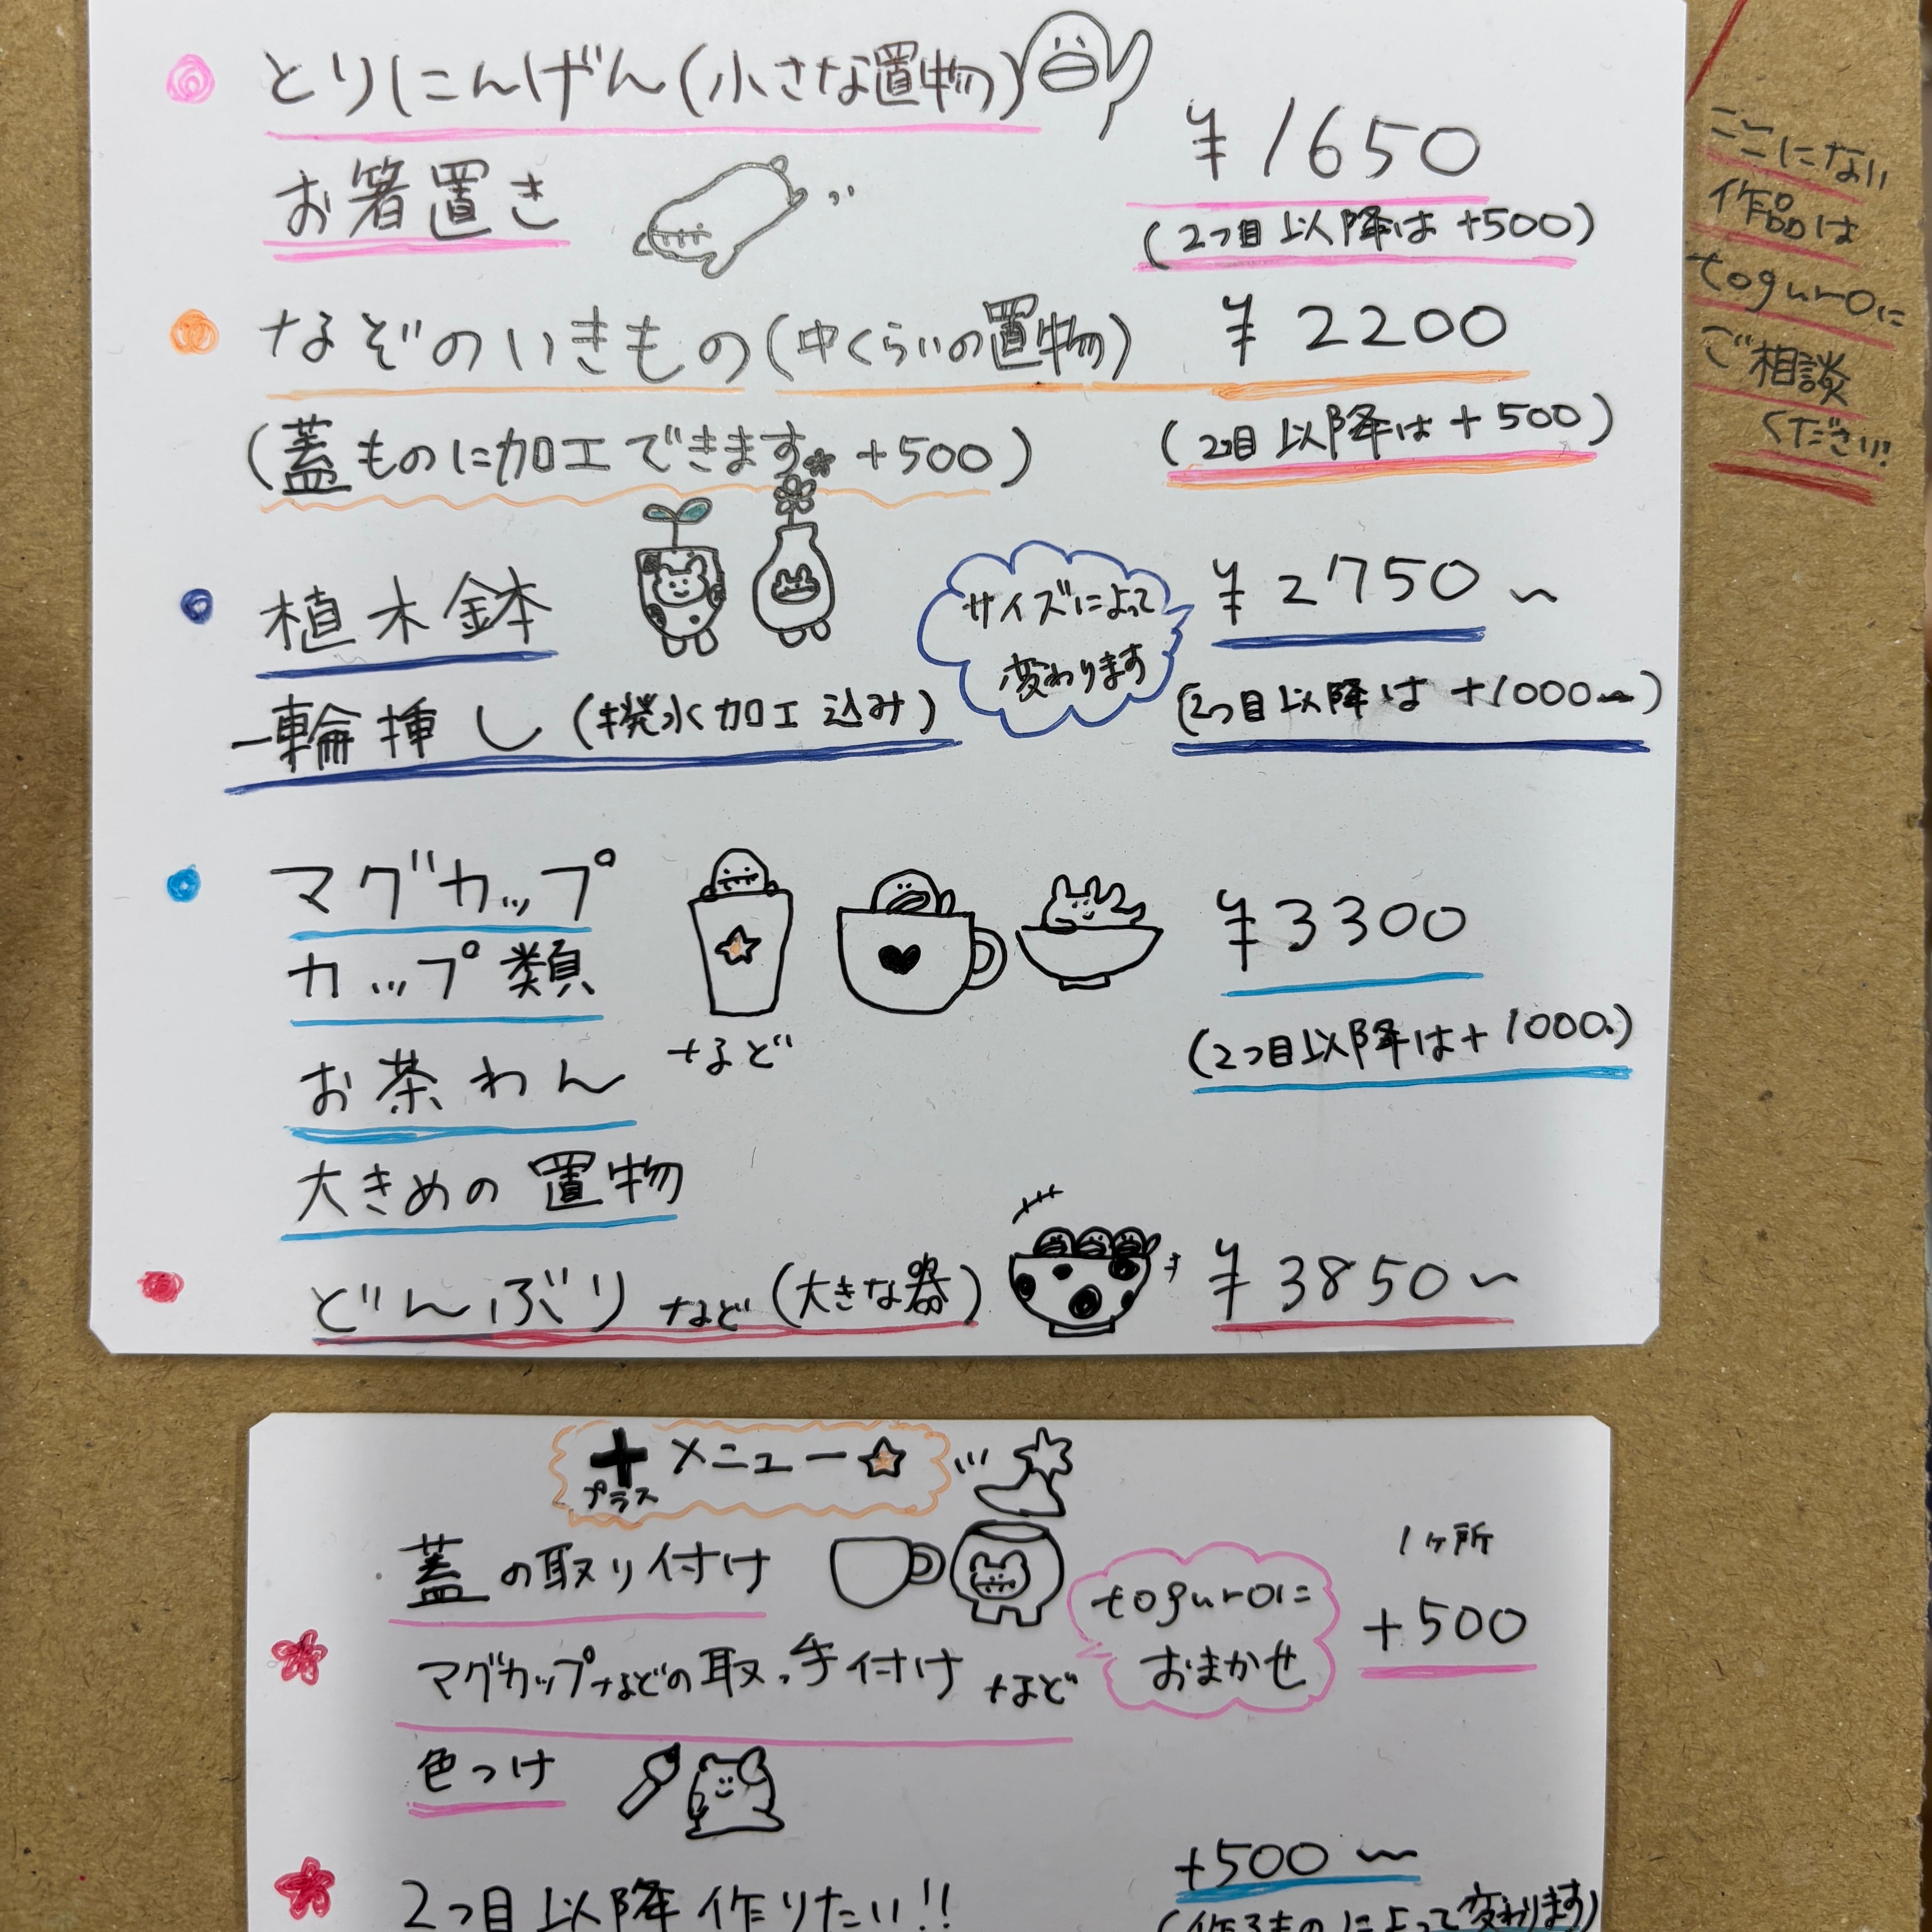 とりにんげん(小さな置物)
お箸置き
¥1650
(2つ目以降は+500)
なぞのいきもの(中くらいの置物) ¥2200
(蓋ものに加工できます。+500)
(2つ目以降は+500)
植木鉢
サイズによって
変わります
¥2750~
一輪挿し(撥水加工込み)
(2つ目以降は+1000~)
マグカップ
カップ類
お茶わん
大きめの置物
など
¥3300
(2つ目以降は+1000)
どんぶりなど(大きな器) ¥3850~
ここにない
作品は
toguroに
ご相談
ください!
+メニュー
プラス
蓋の取り付け
マグカップなどの取っ手付け など
色つけ
toguroに
おまかせ
1ヶ所
+500
2つ目以降作りたい!!
+500~
(作るものによって変わります)